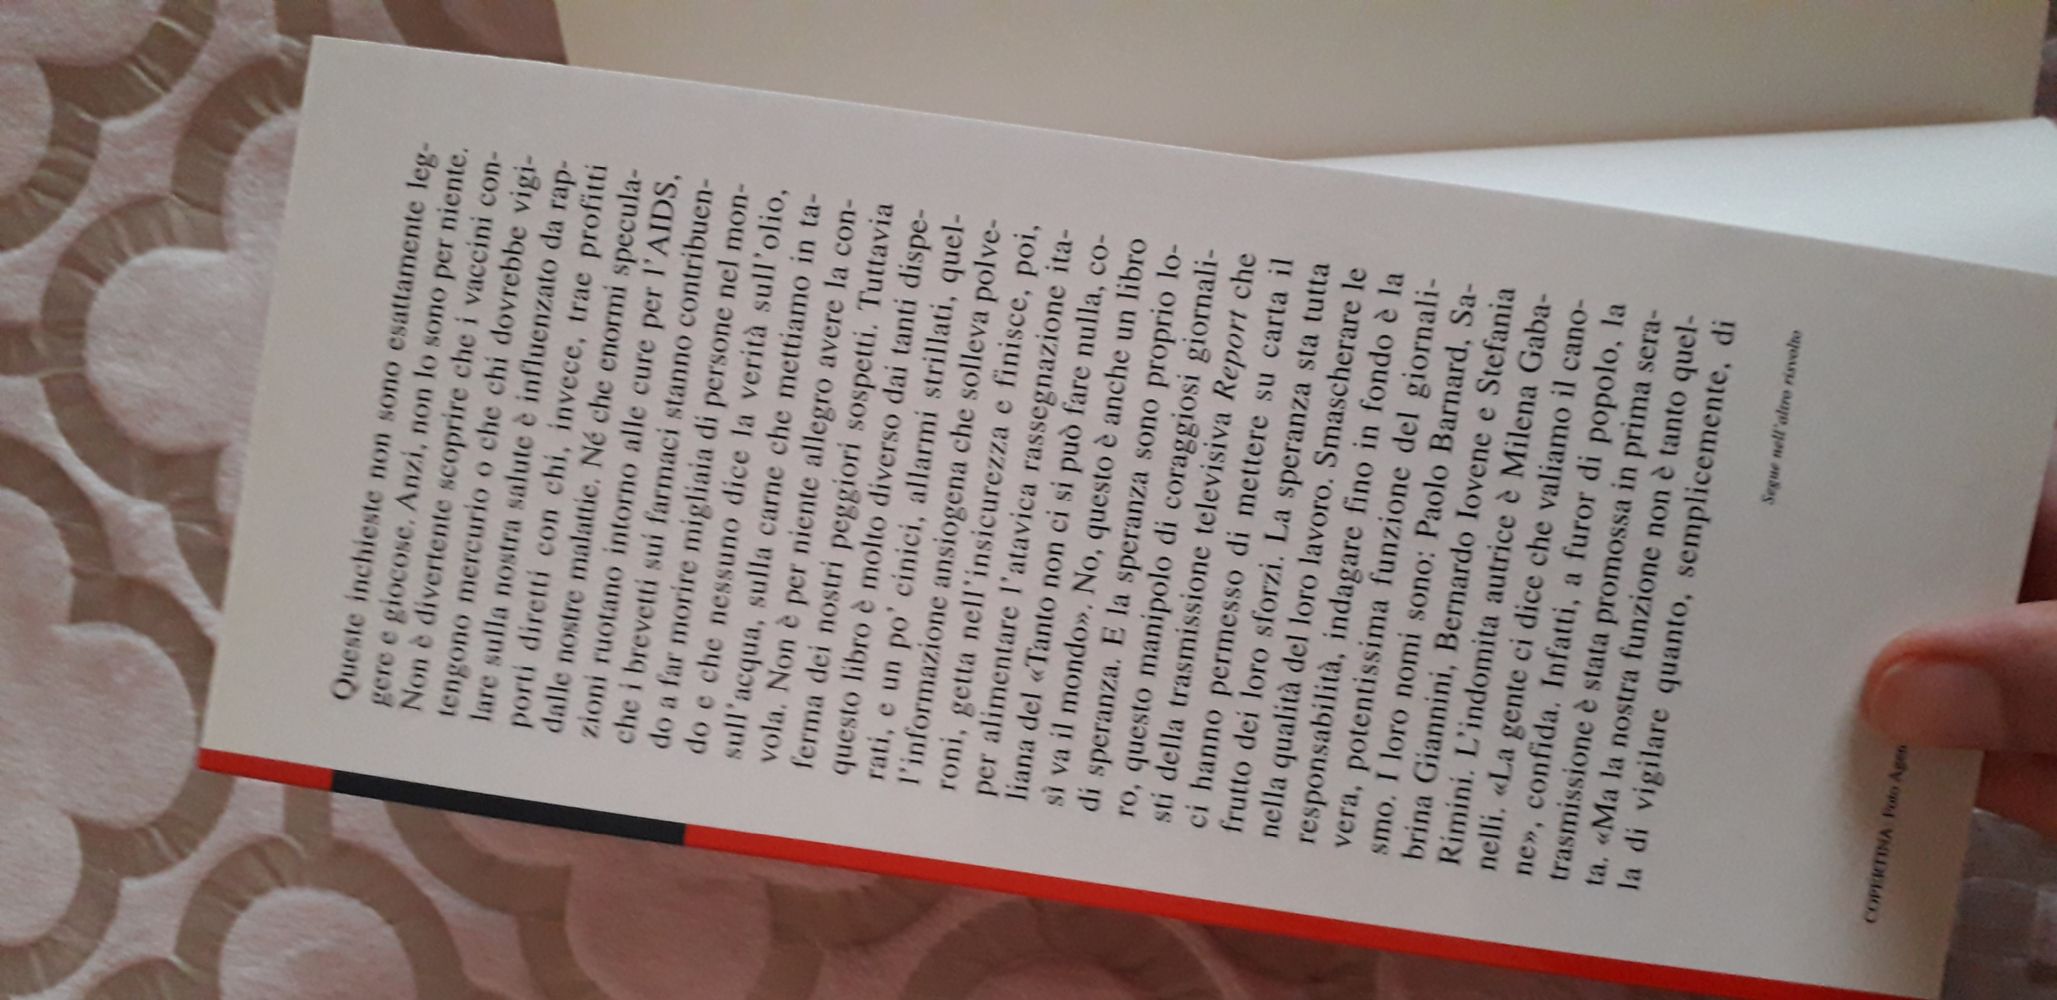 Queste inchieste non sono esattamente leg-
gere e giocose. Anzi, non lo sono per niente.
Non è divertente scoprire che i vaccini con-
tengono mercurio o che chi dovrebbe vigi-
lare sulla nostra salute è influenzato da rap-
porti diretti con chi, invece, trae profitti
dalle nostre malattie. Né che enormi specula-
zioni ruotano intorno alle cure per l'AIDS,
che i brevetti sui farmaci stanno contribuen-
do a far morire migliaia di persone nel mon-
do e che nessuno dice la verità sull'olio,
sull'acqua, sulla carne che mettiamo in ta-
vola. Non è per niente allegro avere la con-
ferma dei nostri peggiori sospetti. Tuttavia
questo libro è molto diverso dai tanti dispe-
rati, e un po' cinici, allarmi strillati, quel-
l'informazione ansiogena che solleva polve-
roni, getta nell'insicurezza e finisce, poi,
per alimentare l'atavica rassegnazione ita-
liana del «Tanto non ci si può fare nulla, co-
sì va il mondo». No, questo è anche un libro
di speranza. E la speranza sono proprio lo-
ro, questo manipolo di coraggiosi giornali-
sti della trasmissione televisiva Report che
ci hanno permesso di mettere su carta il
fruto dei loro sforzi. La speranza sta tutta
nella qualità del loro lavoro. Smascherare le
responsabilità, indagare fino in fondo è la
vera, potentissima funzione del giornali-
smo. I loro nomi sono: Paolo Barnard, Sa-
brina Giannini, Bernardo Iovene e Stefania
Rimini. L'indomita autrice è Milena Gaba-
nelli. «La gente ci dice che valiamo il cano-
ne», confida. Infatti, a furor di popolo, la
trasmissione è stata promossa in prima sera-
ta. «Ma la nostra funzione non è tanto quel-
la di vigilare quanto, semplicemente, di
Segue nell'altro risvolto
COPERTINA: Foto